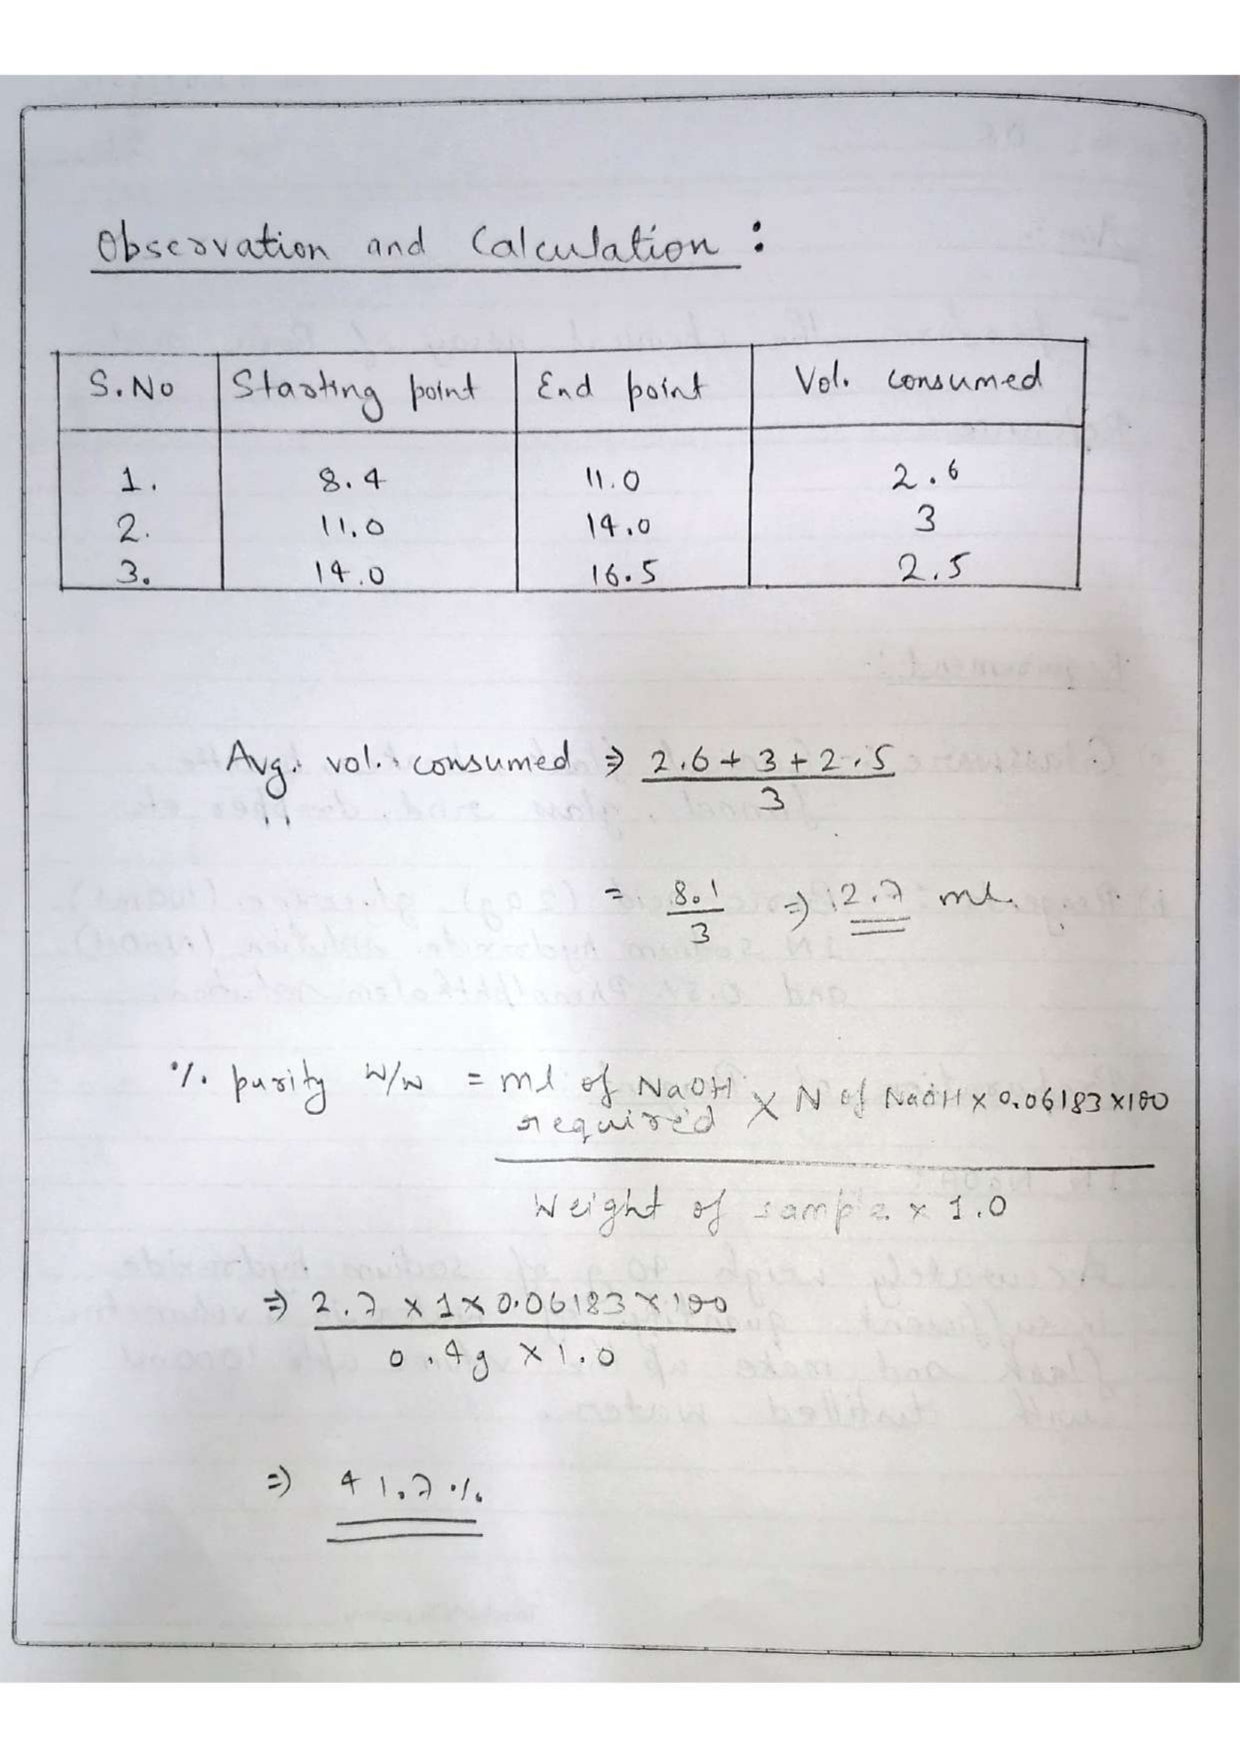 Observation and Calculation :
S.No Starting point End point Vol. consumed
1. 8.4 11.0 2.6
2. 11.0 14.0 3
3. 14.0 16.5 2.5
Avg. vol. consumed ⇒ 2.6 + 3 + 2.5
3
= 8.1 ⇒ 2.7 ml.
3
% purity W/W = ml of NaOH required × N of NaOH × 0.06183 × 100
Weight of sample × 1.0
⇒ 2.7 × 1 × 0.06183 × 100
0.4g × 1.0
⇒ 41.7 %